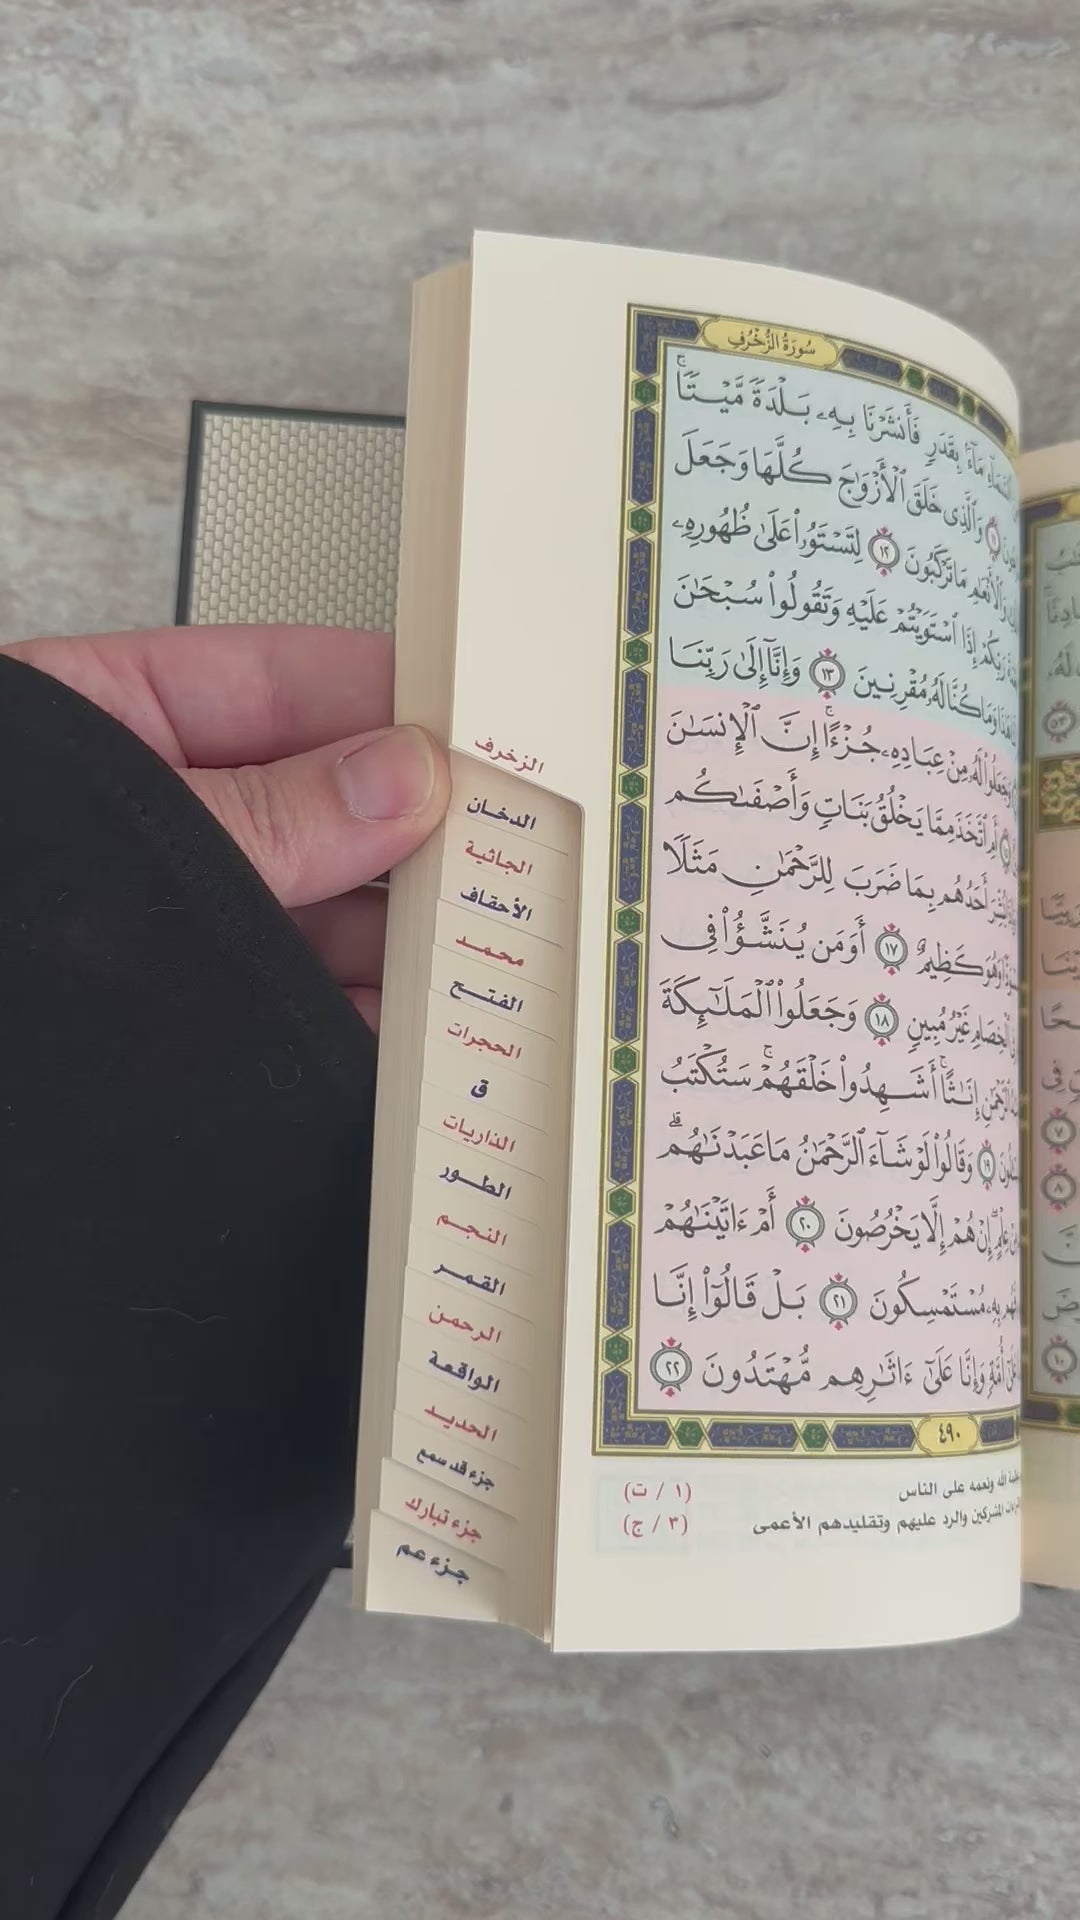 سُورَةُ الزُّخْرُفِ
مَآءَۢ بِقَدَرٍ فَأَنشَرْنَا بِهِۦ بَلْدَةً مَّيْتًا ۚ
وَٱلَّذِى خَلَقَ ٱلْأَزْوَٰجَ كُلَّهَا وَجَعَلَ
وَٱلْأَنْعَٰمِ مَا تَرْكَبُونَ ١٢ لِتَسْتَوُۥا۟ عَلَىٰ ظُهُورِهِۦ
رَبِّكُمْ إِذَا ٱسْتَوَيْتُمْ عَلَيْهِ وَتَقُولُوا۟ سُبْحَٰنَ
هَٰذَا وَمَا كُنَّا لَهُۥ مُقْرِنِينَ ١٣ وَإِنَّآ إِلَىٰ رَبِّنَا
وَجَعَلُوا۟ لَهُۥ مِنْ عِبَادِهِۦ جُزْءًا ۚ إِنَّ ٱلْإِنسَٰنَ
أَمِ ٱتَّخَذَ مِمَّا يَخْلُقُ بَنَاتٍ وَأَصْفَىٰكُم
أَحَدُهُم بِمَا ضَرَبَ لِلرَّحْمَٰنِ مَثَلًا
وَهُوَ كَظِيمٌ ١٧ أَوَمَن يُنَشَّؤُا۟ فِى
ٱلْخِصَامِ غَيْرُ مُبِينٍ ١٨ وَجَعَلُوا۟ ٱلْمَلَٰٓئِكَةَ
ٱلرَّحْمَٰنِ إِنَٰثًا ۚ أَشَهِدُوا۟ خَلْقَهُمْ ۚ سَتُكْتَبُ
١٩ وَقَالُوا۟ لَوْ شَآءَ ٱلرَّحْمَٰنُ مَا عَبَدْنَٰهُم ۗ
عِلْمٍ ۖ إِنْ هُمْ إِلَّا يَخْرُصُونَ ٢٠ أَمْ ءَاتَيْنَٰهُمْ
بِهِۦ مُسْتَمْسِكُونَ ٢١ بَلْ قَالُوٓا۟ إِنَّا
عَلَىٰٓ أُمَّةٍ وَإِنَّا عَلَىٰٓ ءَاثَٰرِهِم مُّهْتَدُونَ ٢٢
٤٩٠
الله ونعمه على الناس (١ / ت)
المشركين والرد عليهم وتقليدهم الأعمى (٣ / ج)
الزخرف
الدخان
الجاثية
الأحقاف
محمد
الفتح
الحجرات
ق
الذاريات
الطور
النجم
القمر
الرحمن
الواقعة
الحديد
جزء قد سمع
جزء تبارك
جزء عم